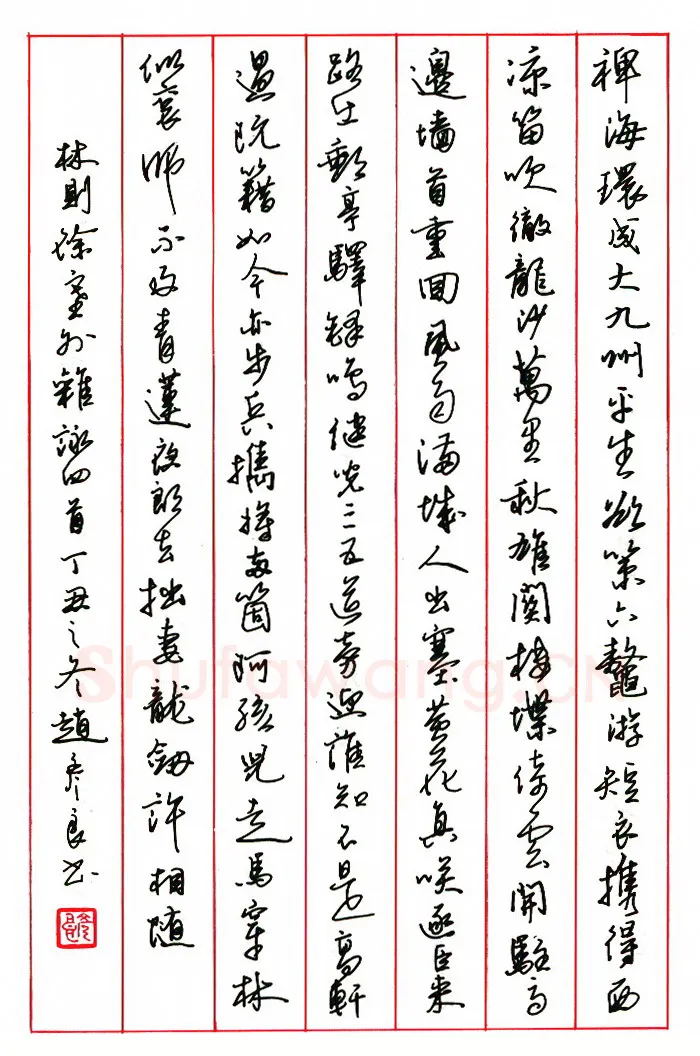 裨海環成大九州平生欲策六鼇游短衣攜得西
凉笛吹徹龍沙萬里秋雄關樓堞倚雲開駐馬
邊墻首重回風雨滿城人出塞黄花真咲逐臣來
路出郵亭驛鐸鳴健兒三五道旁迎誰知不是高軒
過阮籍如今亦步兵攜將兩箇阿孩兒走馬穿林
似衮師不及青蓮夜郎去拙妻龍劒許相隨
林則徐塞外雜詠四首丁丑之冬趙彥良書
Shufawang.CN